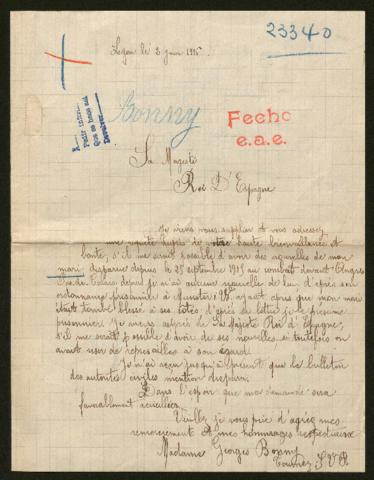 23340
Lezan le 3 juin 1916
Pedir infor.
Que se haga acá
Devolver
Bonny
Fecho
e.a.e.
Sa Majesté
Roi D'Espagne
Je viens vous supplier et vous adresser
une requête auprès de votre haute bienveillance et
bonté, s'il me serait possible d'avoir des nouvelles de mon
mari disparue depuis le 25 septembre 1915 au combat devant
Pas de Calais depuis je n'ai aucune nouvelle de lui d'après son
ordonnance prisonnier à Munster W. ayant appris que mon mari
était tombé blessé à ses côtés d'après sa lettre je le présume
prisonnier. Je viens auprès de Sa Majesté Roi d'Espagne,
s'il me serait possible d'avoir de ses nouvelles si toutefois on
avait user de represailles à son égard.
Je n'ai reçu jusqu'à présent que le bulletin
des autorités civiles mention disparu.
Dans l'espoir que ma demande sera
favorablement accueillie.
Veuillez je vous prie d'agréez mes
remerciement et mes hommages respectueux
Madame Georges Bonny